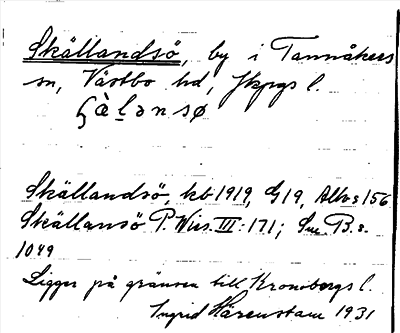 Skällandsö, by i Tannåkers
sn, Västbo hd, Jkpgs l.
Skällandsö, kb 1919, G19, Allb s 156
Skällansö P. Wies. III: 171; Sm B. s.
1049
Ligger på gränsen till Kronobergs l.
Ingrid Härenstam 1931